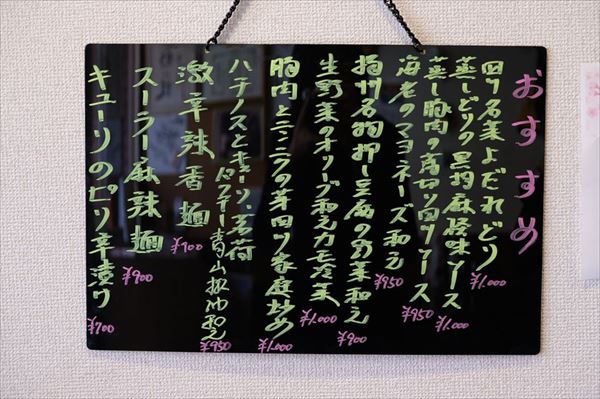 おすすめ
四川名菜よだれどり ¥1,000
蒸しどりの黒胡麻怪味ソース ¥1,000
蒸し胸肉の角切り四川ソース ¥950
海老のマヨネーズ和え ¥950
揚州名物押し豆腐の力菜和え ¥900
生野菜のオリーブ和え力モ冷菜 ¥1,000
胸肉とニンニクの芽四川家庭炒め ¥1,000
ハチノスとキューリ、茗荷
青山椒油和え ¥950
激辛辣香麺 ¥900
スーラー麻辣麺 ¥900
キューリのピリ辛漬け ¥700